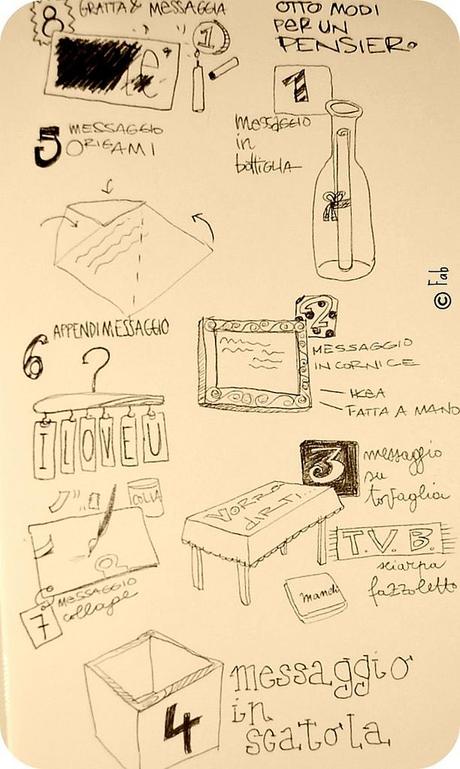 OTTO MODI
PER UN
PENSIERO
1
MESSAGGIO
in
bottiglia
2
MESSAGGIO
IN CORNICE
IKEA
FATTA A MANO
3
messaggio
su
tovaglia
VORREI
DIRTI...
T.V.B.
sciarpa
fazzoletto
Manchi
4
messaggio
in
scatola
5 MESSAGGIO
ORIGAMI
6 APPENDIMESSAGGIO
I LOVE U
COLLA
7 MESSAGGIO
collage
8 GRATTA & MESSAGGIA
1
© Fab